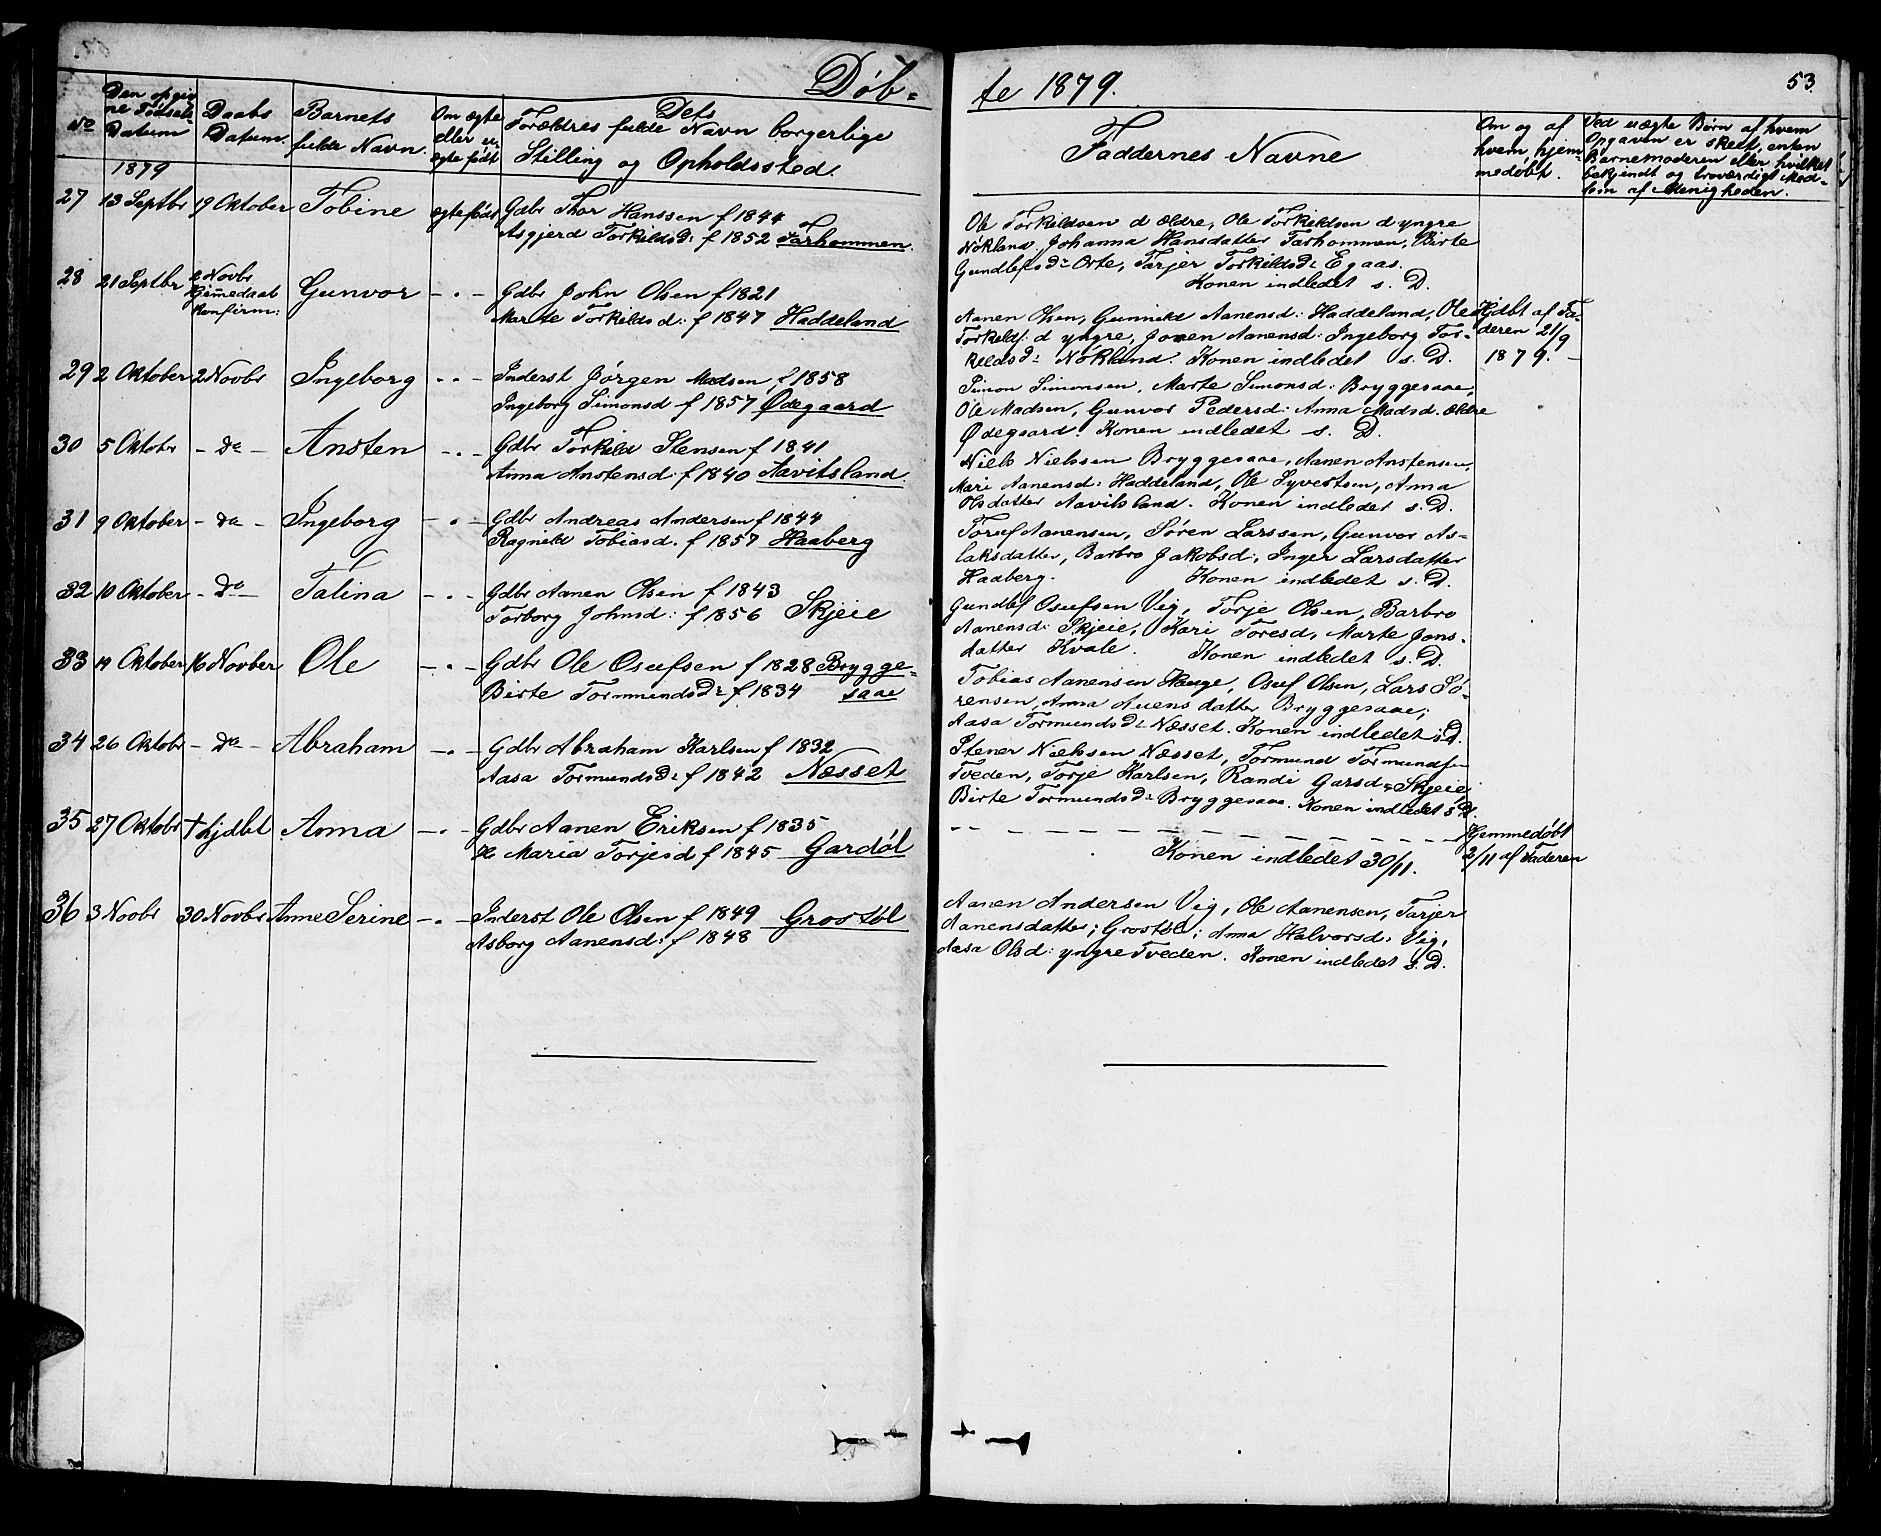 Døb-
No
Den opgiv
ne Fødsels
Datum
Daabs
Datum.
Barnets
fulde Navn.
Om ægte
eller u-
ægte født
Dets
Forældres fulde Navn borgerlige
Stilling og Opholdssted.
1879
27 13 Septbr 19 Oktober Tobine ægtefødt Gdbr Thor Hanssen f 1844
Asgjerd Torkildsd: f 1852 Tarhommen.
28 21 Septbr 2 Novbr Gunvor - " - Gdbr John Olsen f 1821
Hjemedaab
Konfirm:
Marte Torkildsd: f 1847 Haddeland
29 2 Oktober 2 Novbr Ingeborg - " - Inderst Jørgen Madsen f 1858
Ingeborg Simonsd f 1857 Ødegaard
30 5 Oktobr - Do - Ansten - " - Gdbr Torkild Stensen f 1841
Anna Anstensd: f 1840 Aavitsland.
31 9 Oktober - do - Ingeborg - " - Gdbr Andreas Andersen f 1844
Ragnild Tobiasd. f 1857 Haaberg
32 10 Oktober - Do - Talina - " - Gdbr Aanen Olsen f 1843
Torborg Johnsd: f 1856 Skjeie
33 14 Oktober 16 Novber Ole - " - Gdbr Ole Osufsen f 1828 Brygge-
Birte Tormundsdr f 1834 saae
34 26 Oktobr - Do - Abraham - " - Gdbr Abraham Karlsen f 1832
Aasa Tormundsdr f 1842 Næsset
35 27 Oktobr † hjdbt Anna - " - Gdbr Aanen Eriksen f 1835
Maria Torjesd f 1845 Gardøl
36 3 Novbr 30 Novbr Anne Serine - " - Inderst Ole Olsen f 1849 Grostøl
Asborg Aanensd: f 1848
te 1879.
53
Faddernes Navne
Om og af
hvem hjem-
medøbt.
Ved uægte Børn af hvem
Opgaven er skeet, enten
Barnemoderen eller hvilket
bekjendt og troværdigt Med-
lem af Menigheden.
Ole Torkildsen d ældre, Ole Torkeldsen d yngre
Nøkland. Johanna Hansdatter Tarhommen, Birte
Gundlefsdr Orte, Tarjer Torkildsdr Egaas.
Konen indledet s. D.
Aanen Olsen, Gunnild Aanensd: Haddeland, Ole Hjdbt af Fa-
Torkelds: d yngre, Jonen Aanensd: Ingeborg Tor- deren 21/9
keldsdr Nøkland. Konen indledet s. D. 1879. -
Simon Simonsen, Marte Simonsd: Bryggesaae,
Ole Madsen, Gunvor Pedersd: Anna Madsd. ældre
Ødegaard. Konen indledet s. D.
Niels Nielssen Bryggesaae, Aanen Anstensen,
Mari Aanensd: Haddeland, Ole Syvertsen, Anna
Olsdatter Aavitsland. Konen indledet s. D.
Toruf Aanensen, Søren Larssen, Gunvor As-
laksdatter, Barbro Jakobsd:, Inger Larsdatter
Haaberg. Konen indledet s. D.
Gundlef Osufsen Vig, Torje Olsen, Barbro
Aanensd: Skjeie, Kari Toresd, Marte Jons-
datter Kvale. Konen indledet s. D.
Tobias Aanensen Hauge, Osuf Olsen, Lars Sø-
rensen, Anna Auensdatter Bryggesaae;
Aasa Tormundsdr Næsset. Konen indledet s. D.
Stener Nielssen Næsset, Tormund Tormundsen
Tveden, Torje Karlsen, Randi Garsdr Skjeie
Birte Tormundsdr Bryggesaae. Konen indledet s D.
Hjemmedøbt
Konen indledet 30/11. 2/11 af Faderen
Aanen Andersen Vig, Ole Aanensen, Tarjer
Aanensdatter; Grostøl; Anna Halvorsd: Vig,
Aasa Olsd: yngre Tveden. Konen indledet s. D.